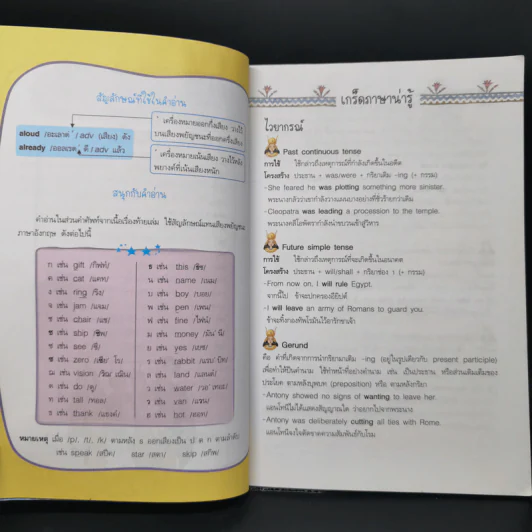 สัญลักษณ์ที่ใช้ในคำอ่าน
เครื่องหมายออกกึ่งเสียง วางไว้
บนเสียงพยัญชนะที่ออกครึ่งเสียง
aloud / adv (เสียง) ดัง
already ดี / adv แล้ว
เครื่องหมายเน้นเสียง วางไว้หลัง
พยางค์ที่เน้นเสียงหนัก
สนุกกับคำอ่าน
คำอ่านในส่วนคำศัพท์จากเนื้อเรื่องท้ายเล่ม ใช้สัญลักษณ์แทนเสียงพยัญชนะ
ภาษาอังกฤษ ดังต่อไปนี้
ก เช่น gift /กิฟท์/
ค เช่น cat /แคท/
ง เช่น ring /ริง/
จ เช่น jam /แจม/
ช เช่น chair /แช/
ช เช่น ship /ชิพ/
ซ เช่น see /ซี/
ซ เช่น zero
ฌ เช่น vision
ด เช่น do /ดู/
ท เช่น tall /ทอล/
ธ เช่น thank /แธงค์/
ธ เช่น this /ธิซ/
น เช่น name /เนม/
บ เช่น boy /บอย/
พ เช่น pen /เพน/
ฟ เช่น fine /ไฟน์/
ม เช่น money /มัน นี่/
ย เช่น yes /เยซ/
ร เช่น rabbit /แรบ บิท/
ล เช่น land /แลนด์/
ว เช่น water /วอ เทอะ/
ว เช่น van /แวน/
ฮ เช่น hot /ฮอท/
หมายเหตุ เมื่อ /p/, /t/, /k/ ตามหลัง s ออกเสียงเป็น ป ต ก ตามลำดับ
เช่น speak /สปีค/ star /สตา/ skip /สกิพ/
เกร็ดภาษาน่ารู้
ไวยากรณ์
Past continuous tense
การใช้ ใช้กล่าวถึงเหตุการณ์ที่กำลังเกิดขึ้นในอดีต
โครงสร้าง ประธาน + was/were + กริยาเติม -ing (+ กรรม)
- She feared he was plotting something more sinister.
พระนางกลัวว่าเขากำลังวางแผนบางอย่างที่ชั่วร้ายกว่าเดิม
- Cleopatra was leading a procession to the temple.
พระนางคลีโอพัตรากำลังนำขบวนเข้าสู่วิหาร
Future simple tense
การใช้ ใช้กล่าวถึงเหตุการณ์ที่จะเกิดขึ้นในอนาคต
โครงสร้าง ประธาน + will/shall + กริยาช่อง 1 (+ กรรม)
- From now on, I will rule Egypt.
จากนี้ไป ข้าจะปกครองอียิปต์
- I will leave an army of Romans to guard you.
ข้าจะทิ้งกองทัพโรมันไว้อารักขาเจ้า
Gerund
คือ คำที่เกิดจากการนำกริยามาเติม -ing (อยู่ในรูปเดียวกับ present participle)
เพื่อทำให้เป็นคำนาม ใช้ทำหน้าที่อย่างคำนาม เช่น เป็นประธาน หรือส่วนเติมเต็มของ
ประโยค ตามหลังบุพบท (preposition) หรือ ตามหลังกริยา
- Antony showed no signs of wanting to leave her.
แอนโทนีไม่ได้แสดงสัญญาณใด ว่าอยากไปจากพระนาง
- Antony was deliberately cutting all ties with Rome.
แอนโทนีจงใจตัดขาดความสัมพันธ์กับโรม